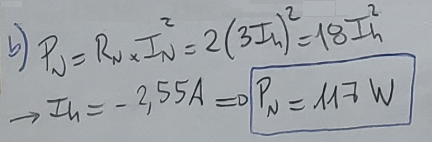 b) P_N = R_N × I_N² = 2(3Ih)² = 18Ih²
→ Ih = - 2,55A => P_N = 117 W